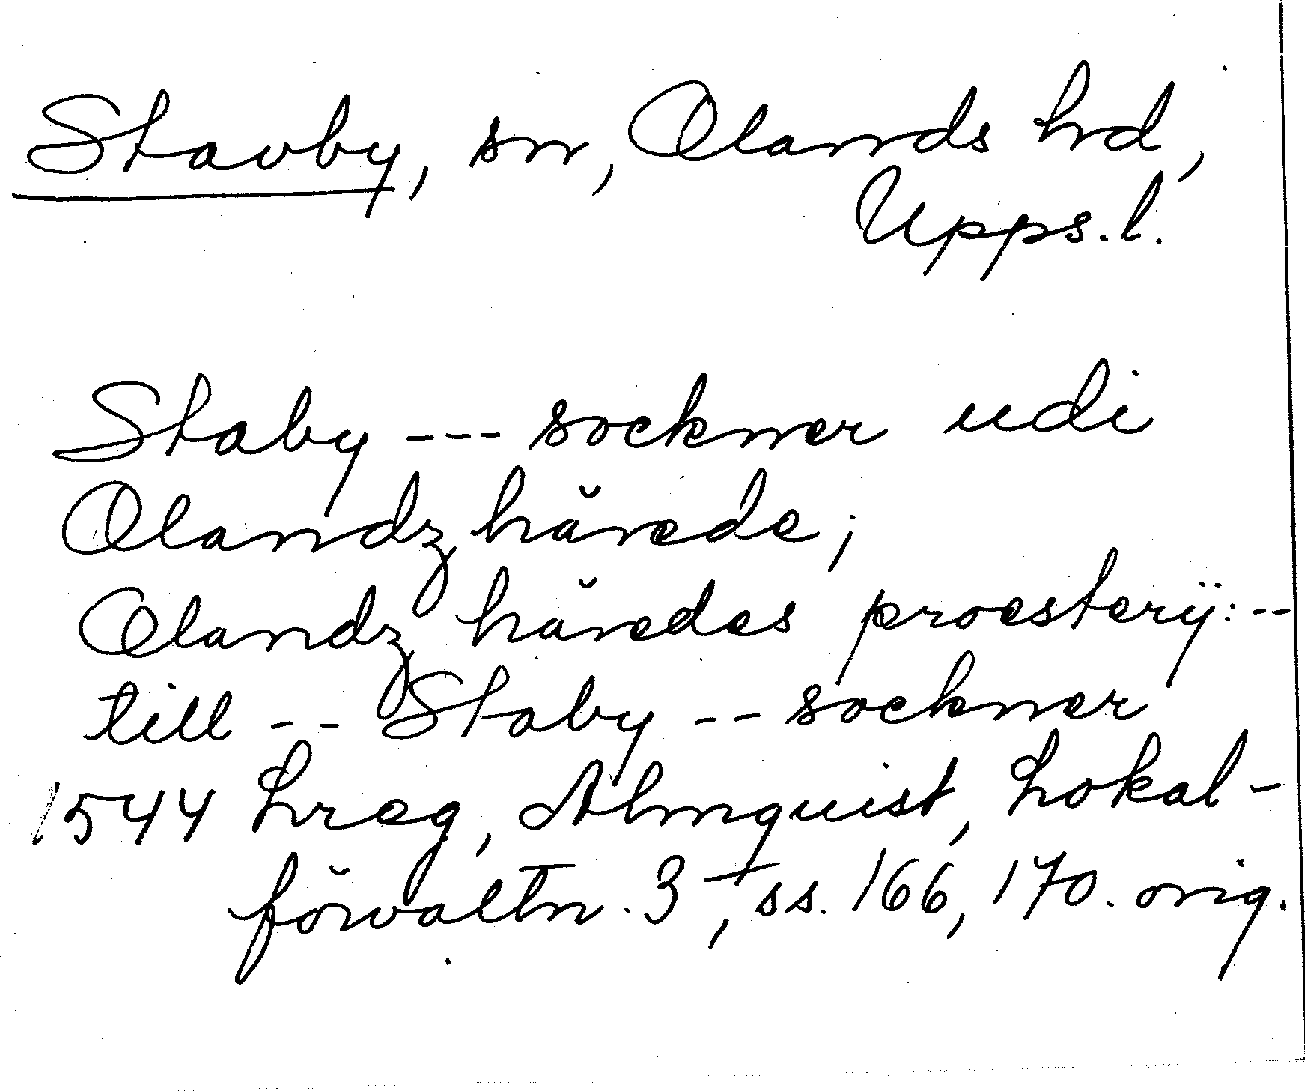 Stavby, sn, Olands hd,
Upps.l.
Staby --- sockner udi
Olandz härede;
Olandz häredes proesterij: --
till -- Staby -- sockner
1544 Lreg, Almquist, Lokal-
förvaltn. 3, ss. 166, 170. orig.